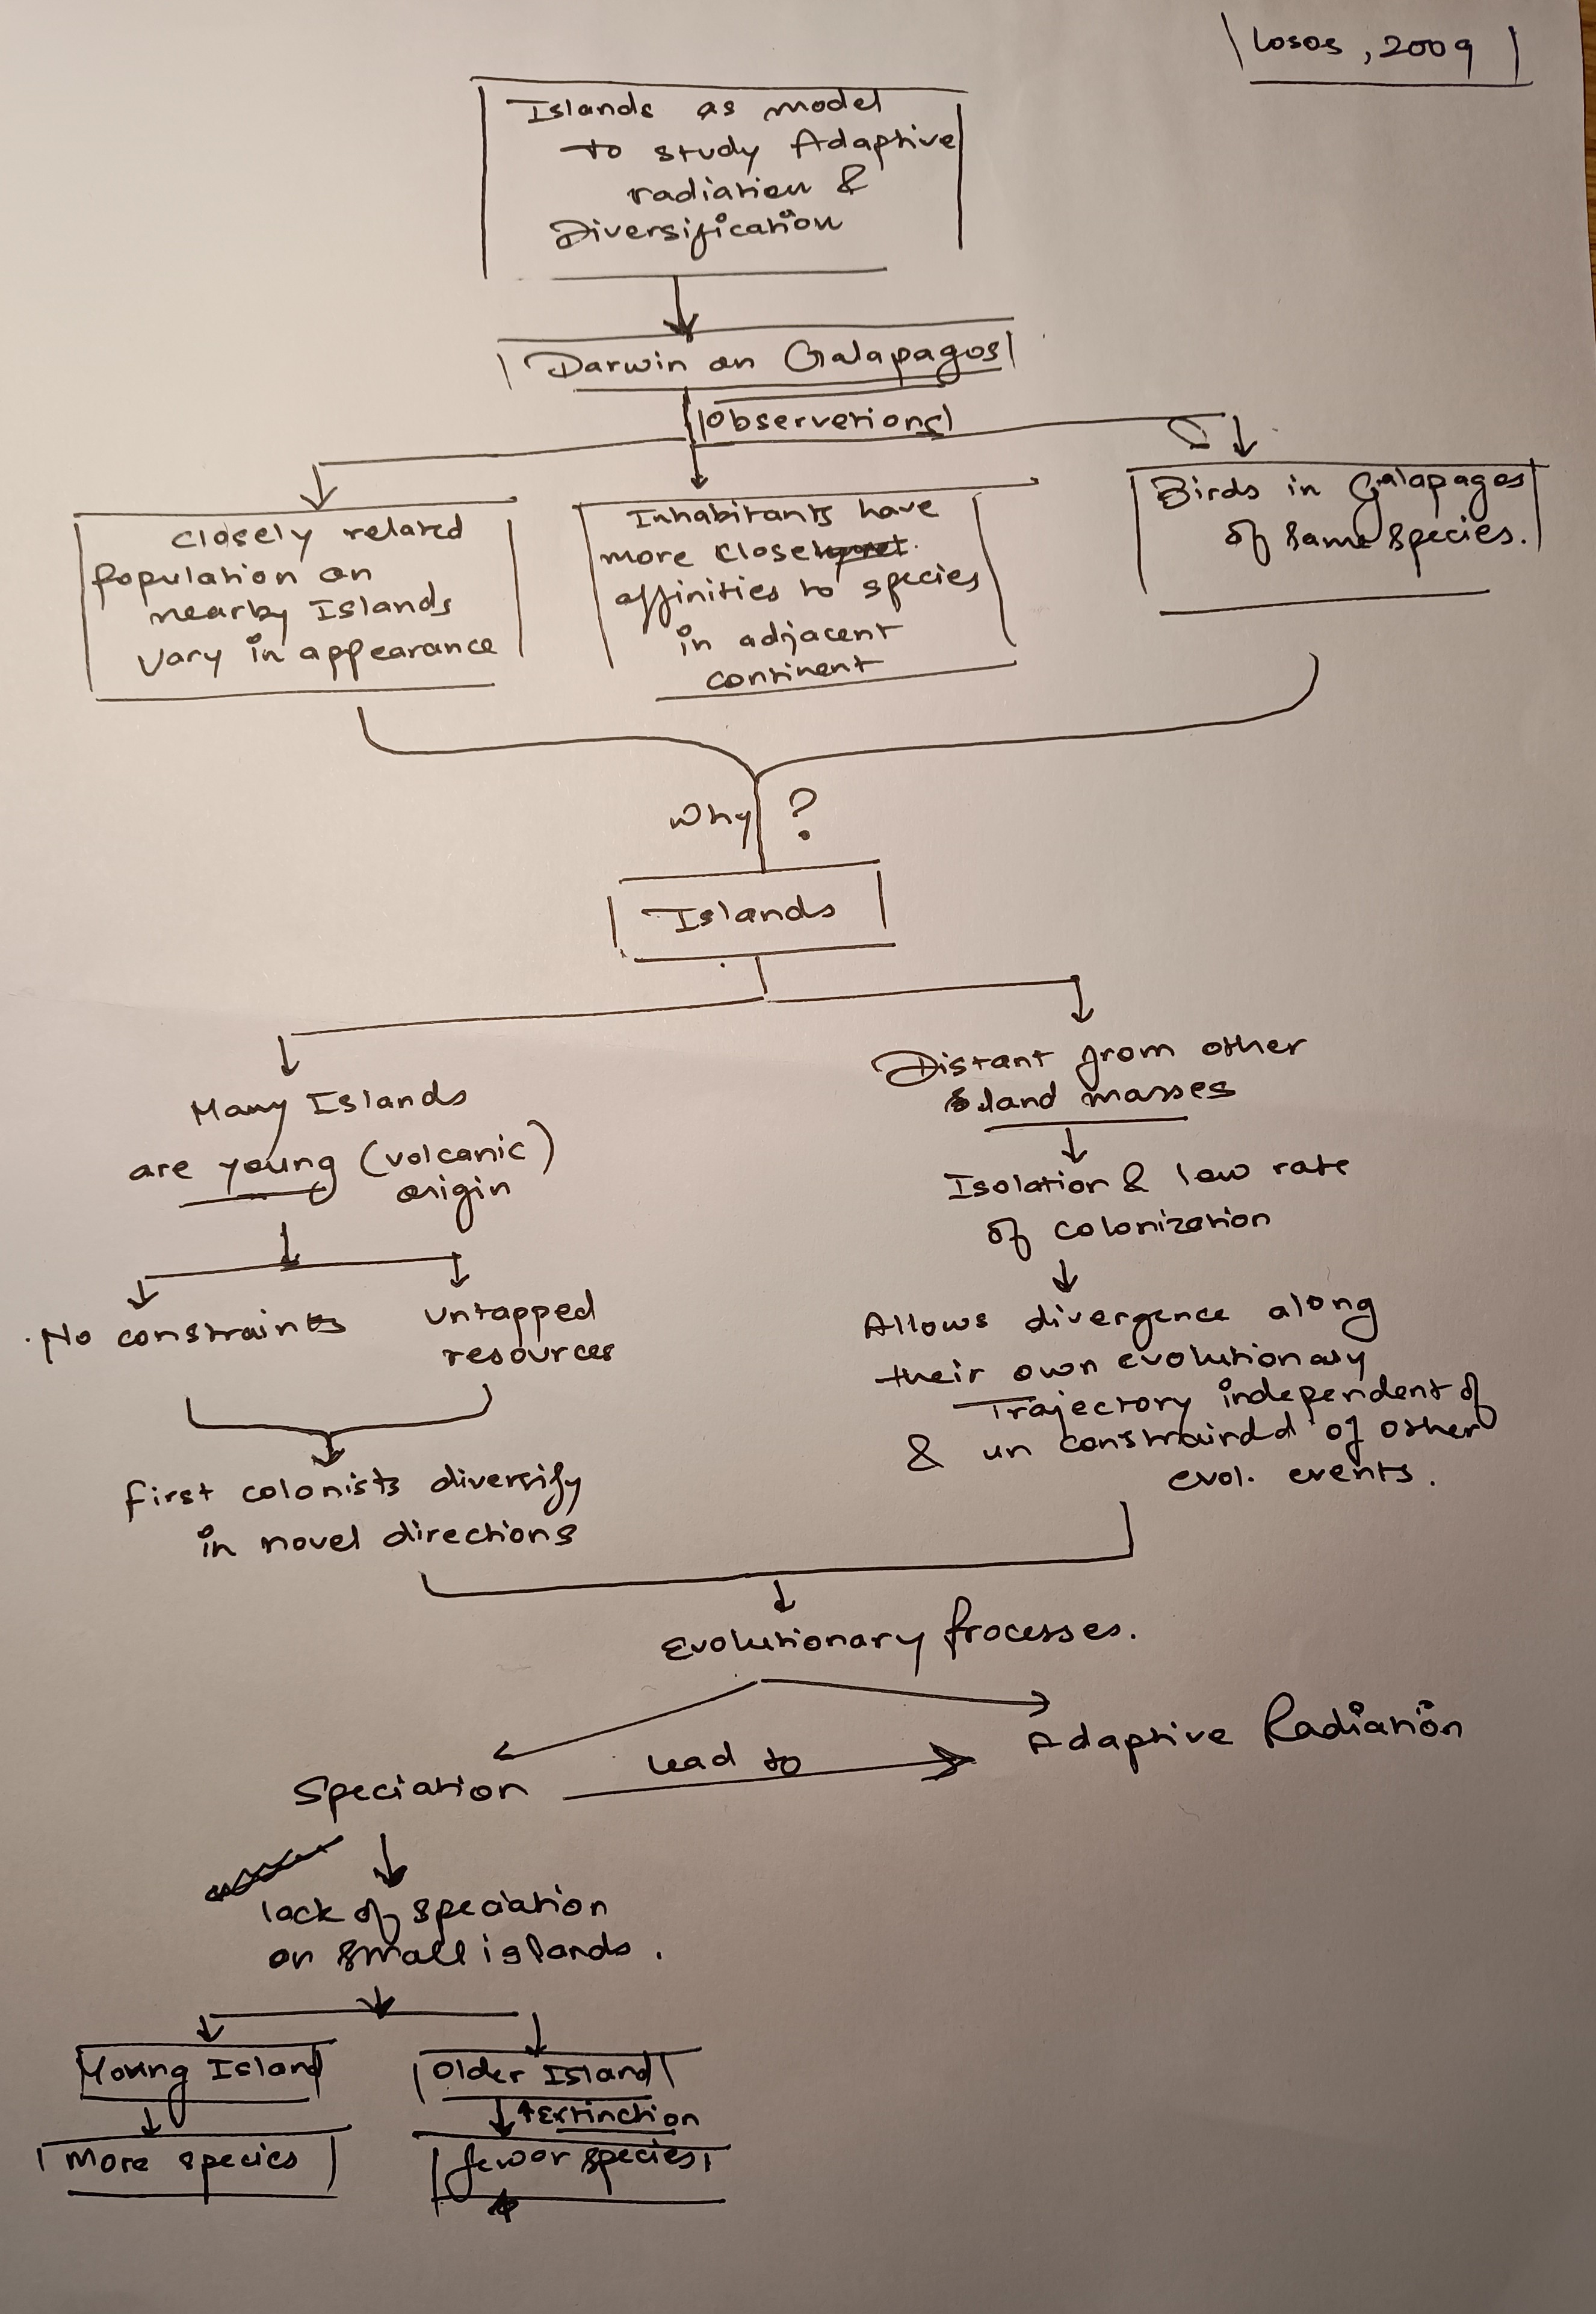 Losos, 2009
Islands as model
to study Adaptive
radiation &
Diversification
Darwin on Galapagos
Observetions
Closely related
Population on
nearby Islands
Vary in appearance
Inhabitants have
more close
affinities to species
in adjacent
continent
Birds in Galapagos
of same species.
Why ?
Islands
Many Islands
are young (volcanic)
origin
No constraints
Untapped
resources
First colonists diversify
in novel directions
Distant from other
land masses
Isolation & low rate
of colonization
Allows divergence along
their own evolutionary
Trajectory independent of
& un constraindd of other
evol. events.
Evolutionary Processes.
Speciation
Lead to
Adaptive Radiation
lack of speciation
on small islands.
Young Island
More species
Older Island
↑Extinction
fewer species